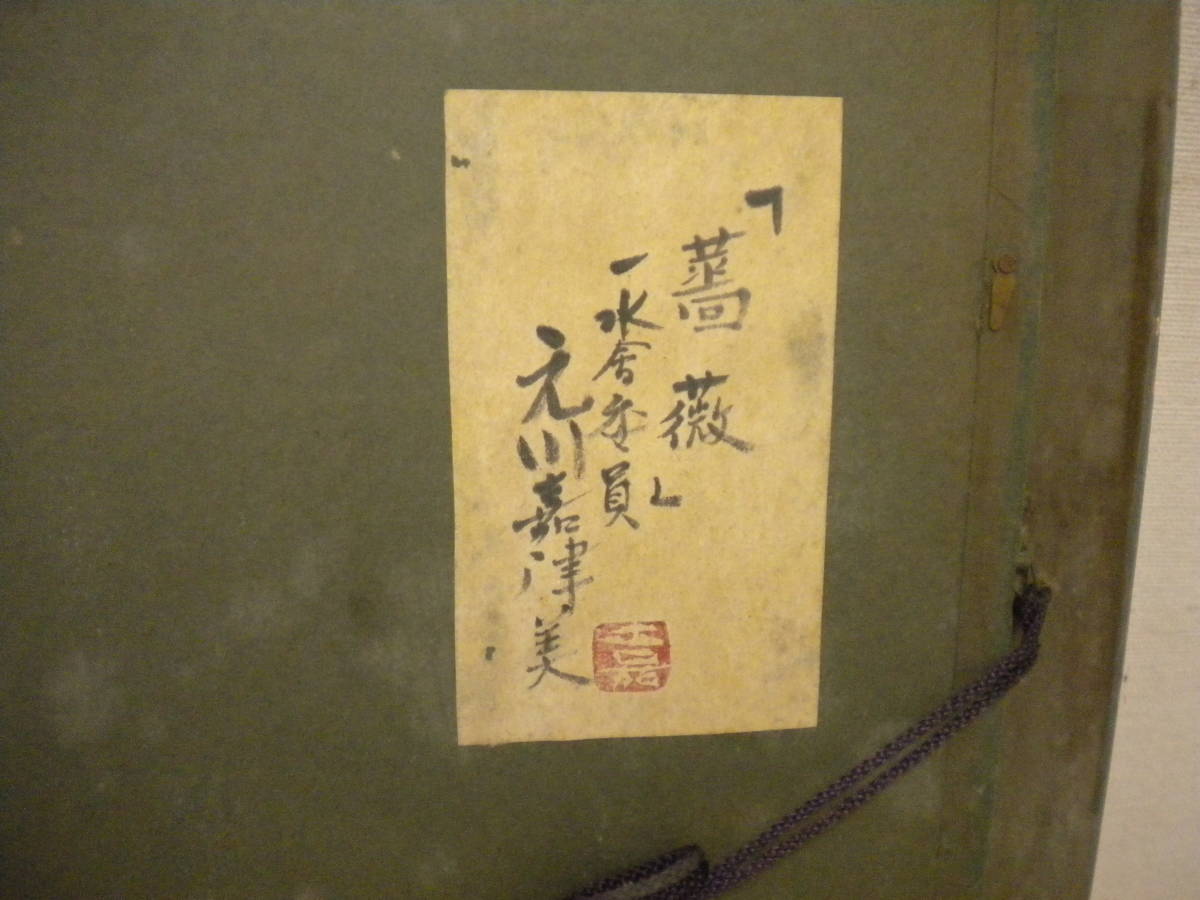 「薔薇」
一水會委員
元川嘉津美
嘉